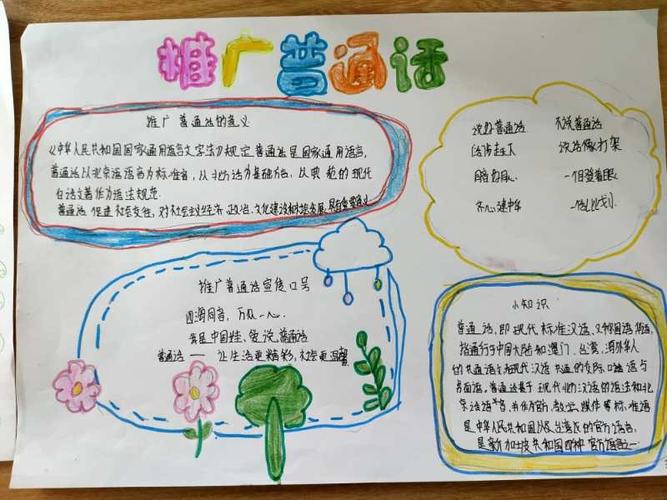 推广普通话
推广普通话的意义
《中华人民共和国国家通用语言文字法》规定普通话是国家通用语言,
普通话以北京语音为标准音,以北方话为基础方言,以典范的现代
白话文著作为语法规范.
普通话促进社会交往,对社会主义经济、政治、文化建设和社会发展具有重要意义
说好普通话 不说普通话
沟通起来
推广普通话宣传口号
四海同音,万众一心.
我是中国娃,爱说普通话
普通话——让生活更精彩,社会更温馨
小知识
普通话,即现代标准汉语,又称国语、华语,
指通行于中国大陆和澳门、台湾、海外华人
的共通语言,为现代汉语共通的交际口语与
书面语,普通话基于现代北方汉语的语法和北
京话语音,
是中华人民共和国以及台湾的官方语言,
是新加坡共和国四种官方语言之一